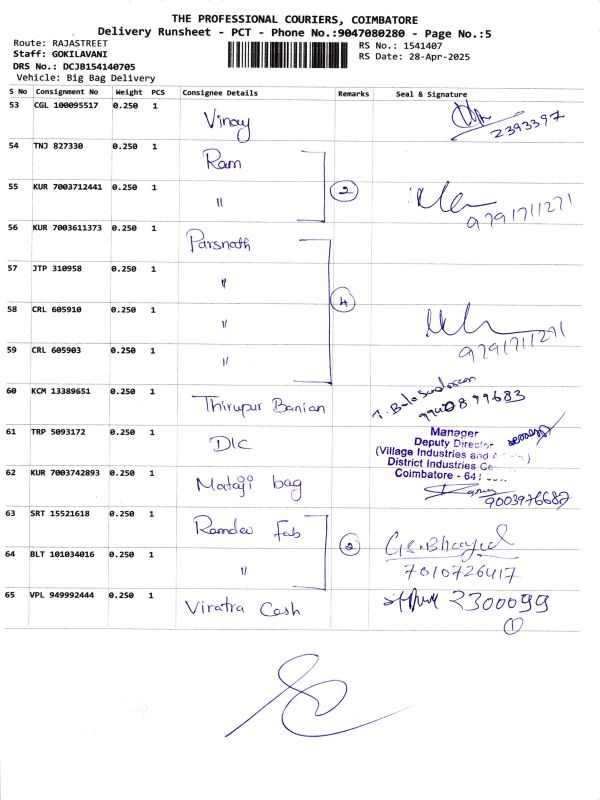 THE PROFESSIONAL COURIERS, COIMBATORE
Delivery Runsheet - PCT - Phone No.:9047080280 - Page No.:5
Route: RAJASTREET
Staff: GOKILAVANI
DRS No.: DCJB154140705
Vehicle: Big Bag Delivery
RS No.: 1541407
RS Date: 28-Apr-2025
S No Consignment No Weight PCS Consignee Details Remarks Seal & Signature
53 CGL 100095517 0.250 1 Vinay 2393397
54 TNJ 827330 0.250 1 Ram
55 KUR 7003712441 0.250 1 " 2 9791711271
56 KUR 7003611373 0.250 1 Parsnath
57 JTP 310958 0.250 1 " 4
58 CRL 605910 0.250 1 " 9791711291
59 CRL 605903 0.250 1 "
60 KCM 13389651 0.250 1 Thirupur Banian T. Balasundaram
9940899683
61 TRP 5093172 0.250 1 DIC Manager
Deputy Director
(Village Industries and
District Industries
Coimbatore - 641
62 KUR 7003742893 0.250 1 Mataji bag 9003976687
63 SRT 15521618 0.250 1 Ramdev Fab
64 BLT 101034016 0.250 1 " 2 7010726417
65 VPL 949992444 0.250 1 Viratra Cash 2300099
1